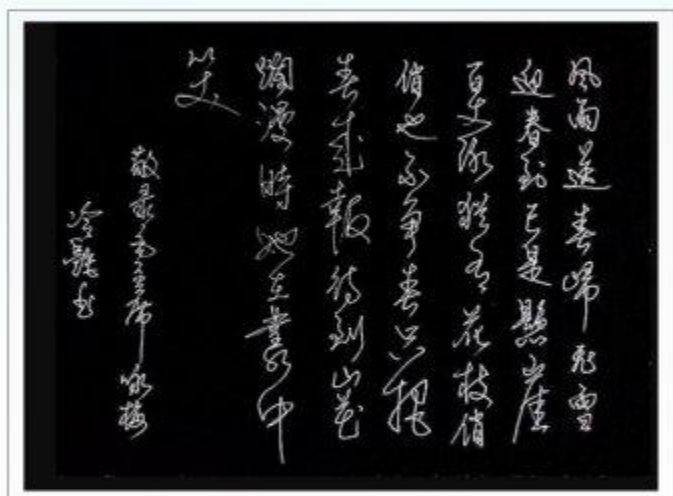 风雨送春歸飞雪
迎春到已是懸崖
百丈冰犹有花枝俏
俏也不争春只把
春来報待到山花
爛漫時她在叢中
笑
敬录毛主席咏梅
冷书